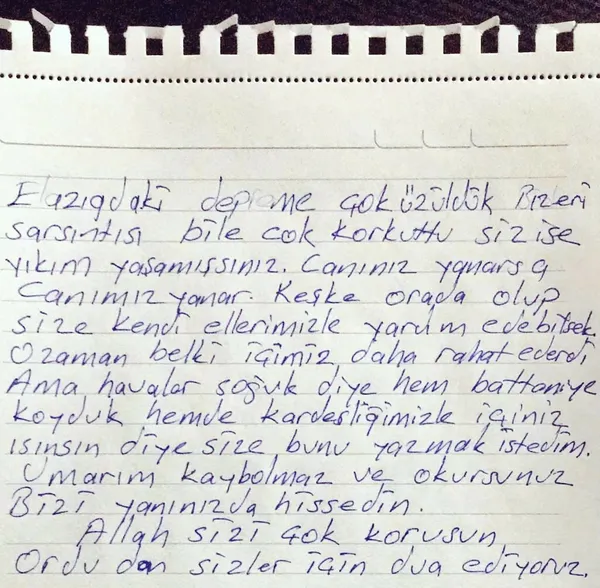 Elazıgdaki depreme çok üzüldük Bizleri
sarsıntısı bile çok korkuttu siz ise
yıkım yaşamışsınız. Canınız yanarsa
Canımız yanar. Keşke orada olup
size kendi ellerimizle yardım edebilsek.
Ozaman belki içimiz daha rahat ederdi
Ama havalar soğuk diye hem battaniye
koyduk hemde kardeşliğimizle içiniz
ısınsın diye size bunu yazmak istedim.
Umarım kaybolmaz ve okursunuz
Bizi yanınızda hissedin.
Allah sizi çok korusun
Ordu dan sizler için dua ediyoruz.